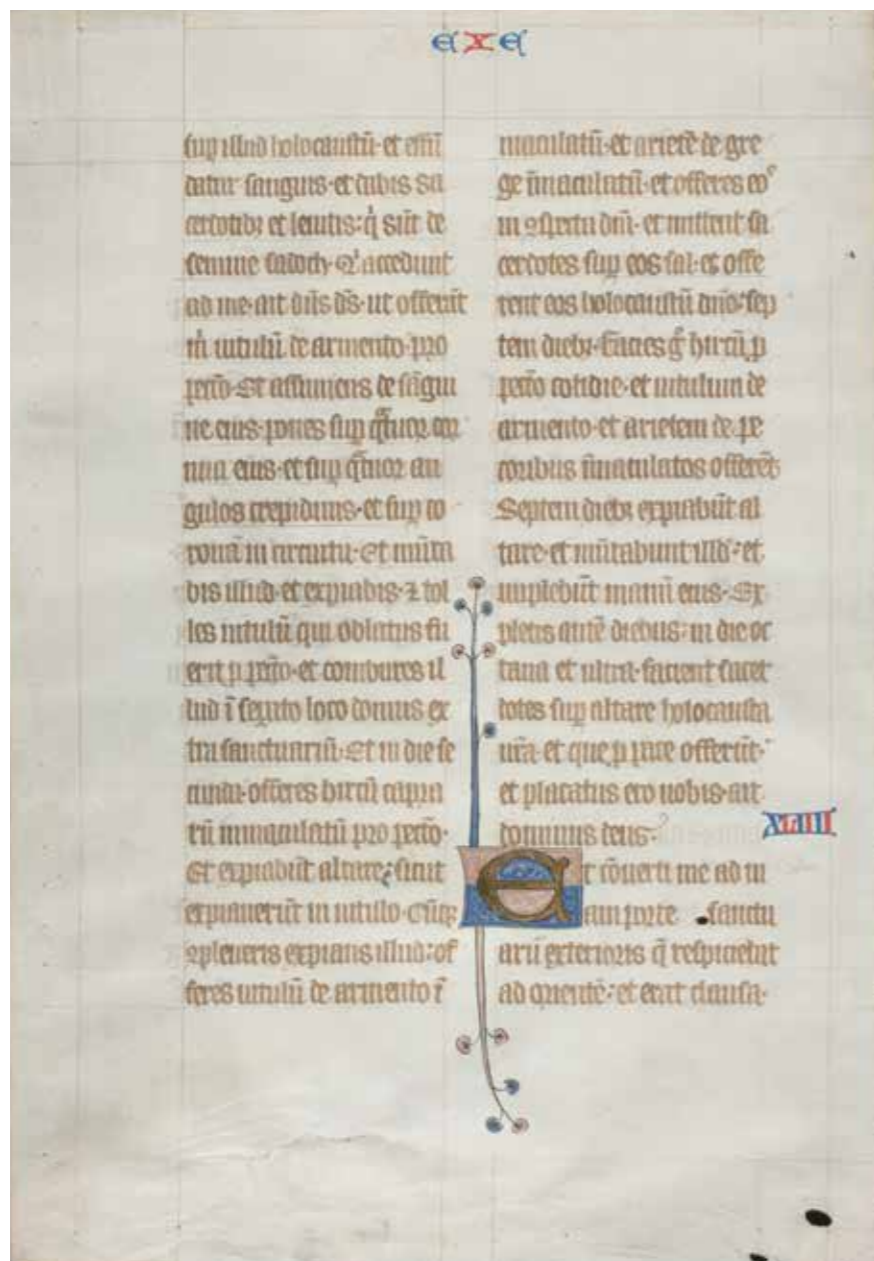 EXE
sup illud holocaustū· et effū
datur sanguis· et dabis sa
cerdotibꝫ et leuitis: q̇ sūt de
semine sadoch· q̇ accedunt
ad me· ait dn̄s ds̄· ut offerāt
m̄ uitulū de armento· pro
pctō· Et assumens de sāgui
ne eius· pones sup q̄tuor cor
nua eius· et sup q̄tuor an
gulos crepidinis· et sup co
ronā in circuitu· Et mūda
bis illud· et expiabis· ⁊ tol
les uitulū qui oblatus fu
erit p̱ pctō· et combures il
lud ī sepato loco domus ex
tra sanctuariū· Et in die se
cunda· offeres hircū capra
rū inmaculatū pro pctō·
Et expiabūt altare; sicut
expiauerūt in uitulo· Cūqꝫ
ꝯpleueris expians illud: of
feres uitulū de armento ī
maculatū· et arietē de gre
ge īmaculatū· et offeres eoˢ
in ꝯspectu dn̄i· et mittent sa
cerdotes sup eos sal· et offe
rent eos holocaustū dn̄o: sep
tem diebꝫ· Facies g̊ hircū p̱
pctō cotidie· et uitulum de
armento· et arietem de pe
coribus īmaculatos offerēt·
Septem diebꝫ expiabūt al
tare· et mūdabunt illd̄: et
implebūt manū eius· Ex
pletis autē diebus: in die oc
taua et ultra· facient sacer
dotes sup altare holocausta
ur̄a· et que p̱ pace offerūt·
et placatus ero uobis· ait
dominus deus·
XLIIII
Et cōuerti me ad ui
am porte sanctu
arii exterioris q̄ respiciebat
ad orientē: et erat clausa·